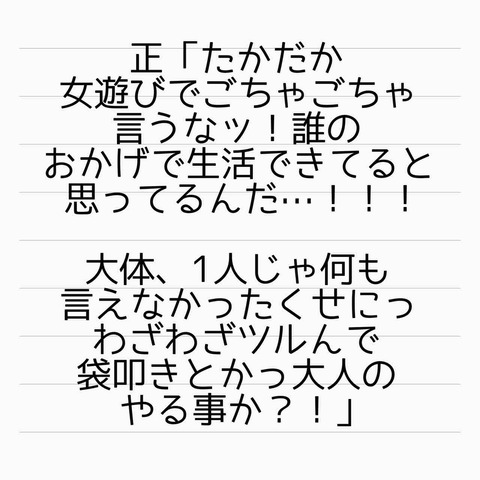 正「たかだか
女遊びでごちゃごちゃ
言うなッ！誰の
おかげで生活できてると
思ってるんだ…！！！
大体、1人じゃ何も
言えなかったくせにっ
わざわざツルんで
袋叩きとかっ大人の
やる事か？！」